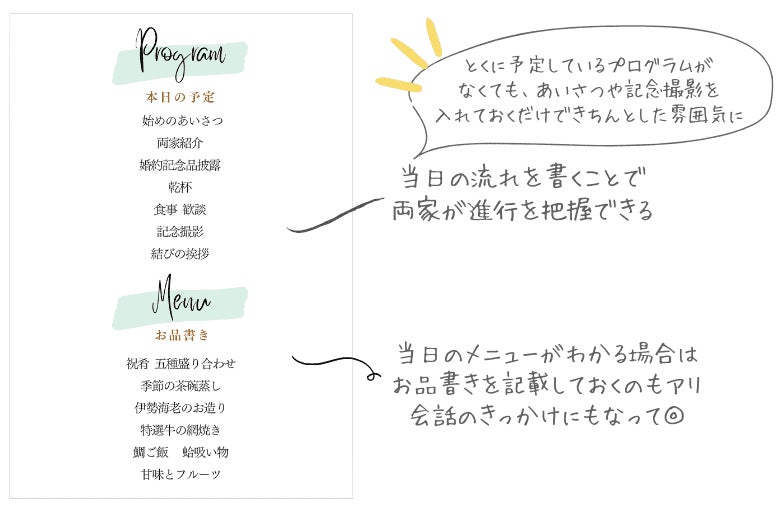 Program
本日の予定
始めのあいさつ
両家紹介
婚約記念品披露
乾杯
食事 歓談
記念撮影
結びの挨拶
Menu
お品書き
祝肴 五種盛り合わせ
季節の茶碗蒸し
伊勢海老のお造り
特選牛の網焼き
鯛ご飯　蛤吸い物
甘味とフルーツ
とくに予定しているプログラムが
なくても、あいさつや記念撮影を
入れておくだけできちんとした雰囲気に
当日の流れを書くことで
両家が進行を把握できる
当日のメニューがわかる場合は
お品書きを記載しておくのもアリ
会話のきっかけにもなって◎